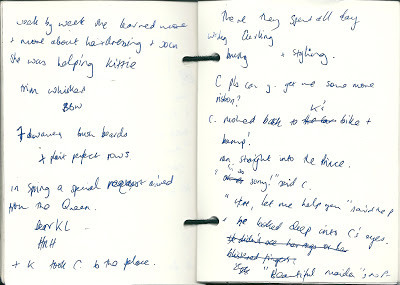 week by week she learned more
+ more about hairdressing + soon
she was helping Kittie
trim whiskers
BBW
7 dwarves bush beards
7 pair perfect rows
in spring a special request arrived
from the Queen.
Dear KL
HRH
+ K took C. to the palace.
There they spent all day
curling
+ styling.
C pls can y. get me some more
ribbon?
C. rushed back to K's bike +
bump!
ran straight into the Prince.
sorry" said C.
let me help you" said the P
+ he looked deep into C's eyes.
It didn't see her rags or her
blistered fingers.
"Beautiful maiden"